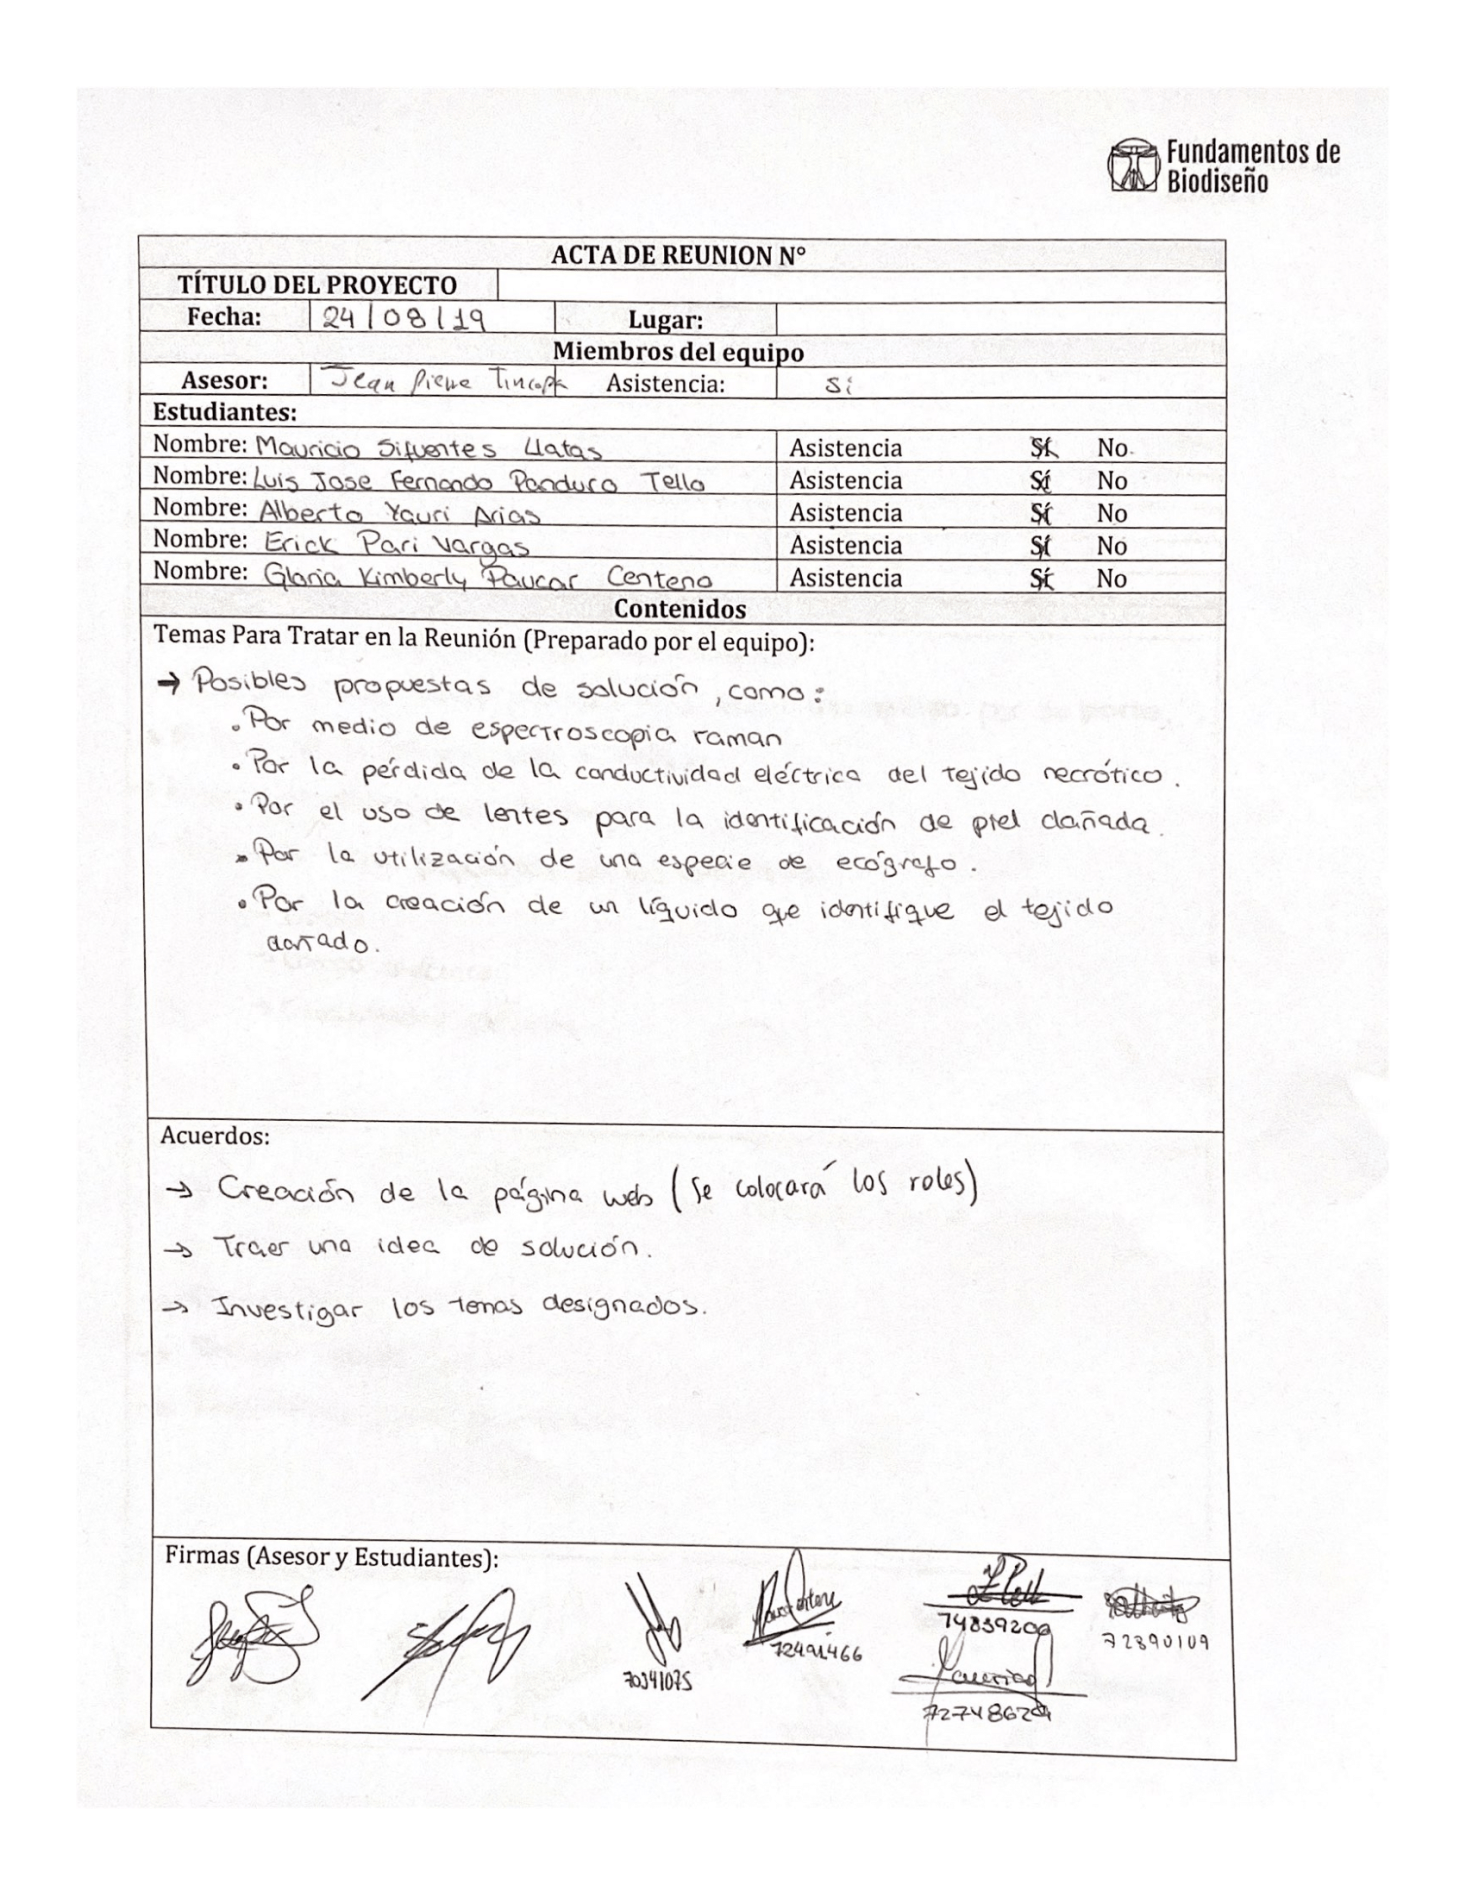 Fundamentos de
Biodiseño
ACTA DE REUNION N°
TÍTULO DEL PROYECTO
Fecha: 24/08/19 Lugar:
Miembros del equipo
Asesor: Jean Pierre Tincopa Asistencia: Sí
Estudiantes:
Nombre: Mauricio Sifuentes Llatas Asistencia Sí No
Nombre: Luis Jose Fernando Panduro Tello Asistencia Sí No
Nombre: Alberto Yauri Arias Asistencia Sí No
Nombre: Erick Pari Vargas Asistencia Sí No
Nombre: Gloria Kimberly Paucar Centeno Asistencia Sí No
Contenidos
Temas Para Tratar en la Reunión (Preparado por el equipo):
→ Posibles propuestas de solución, como:
• Por medio de espectroscopia raman
• Por la pérdida de la conductividad eléctrica del tejido necrótico.
• Por el uso de lentes para la identificación de piel dañada.
• Por la utilización de una especie de ecógrafo.
• Por la creación de un líquido que identifique el tejido
dañado.
Acuerdos:
→ Creación de la página web (Se colocará los roles)
→ Traer una idea de solución.
→ Investigar los temas designados.
Firmas (Asesor y Estudiantes):
74839200
72890109
72491466
70341075